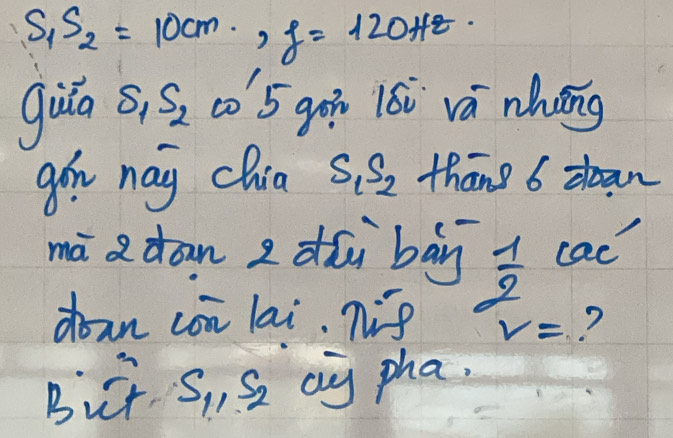 S₁S₂ = 10cm. , f = 120Hz.
giữa S₁S₂ có 5 gợn lồi và những
gợn này chia S₁S₂ thành 6 đoạn
mà 2 đoạn 2 đầu bằng 1/2 các
đoạn còn lại. Tính v = ?
Biết S₁, S₂ cùng pha.